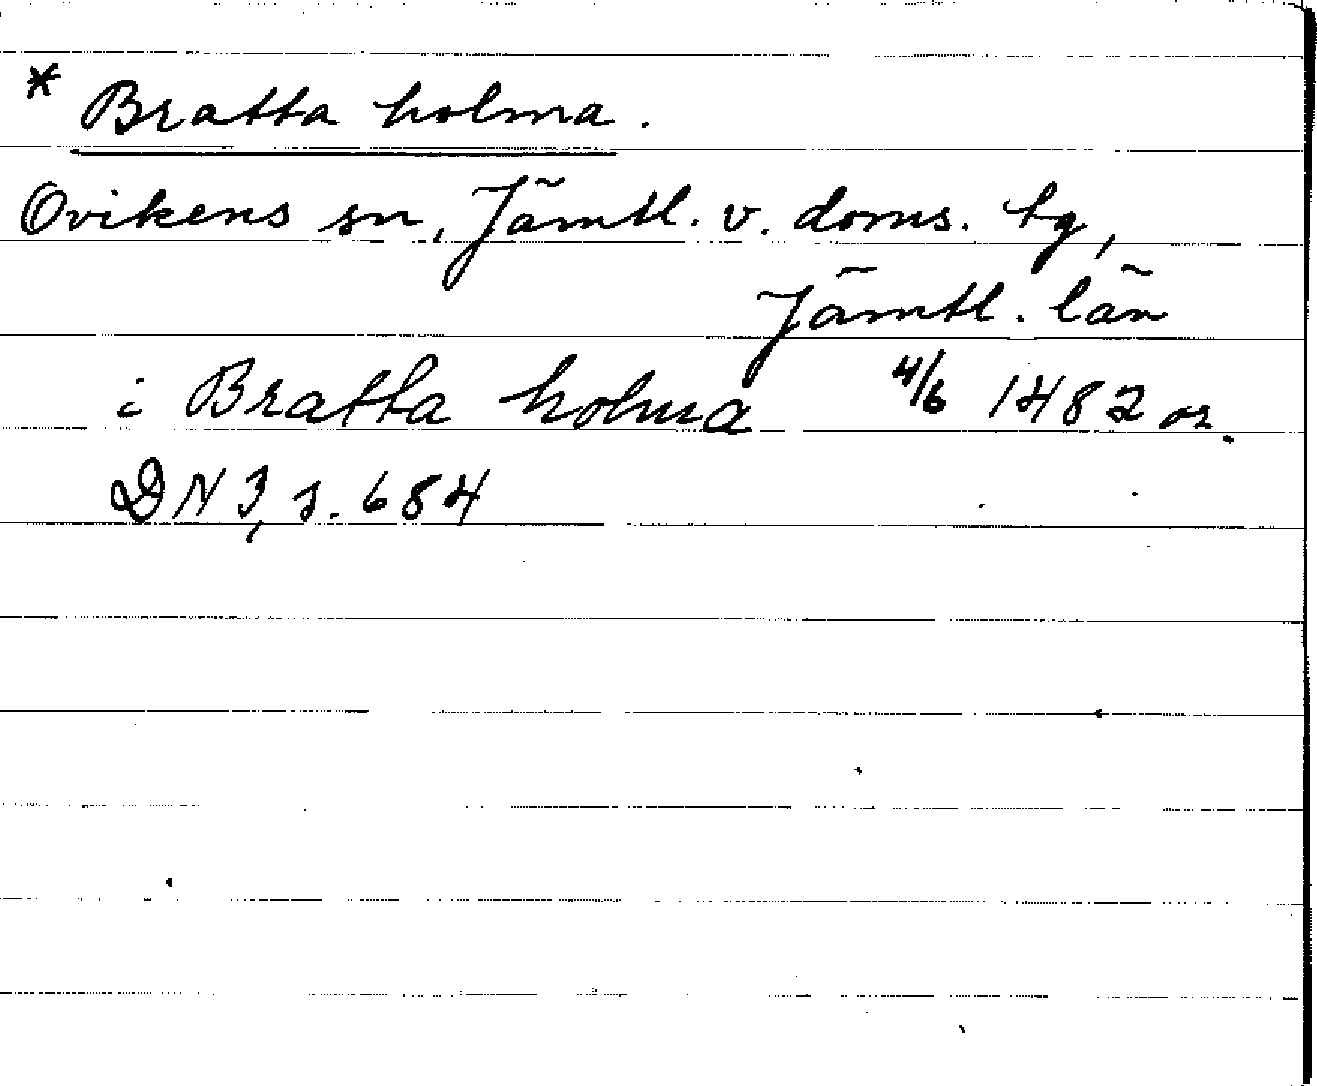 * Bratta holma.
Ovikens sn, Jämtl. v. doms. tg,
Jämtl. län
i Bratta holma 4/6 1482 or.
DN 3, s. 684